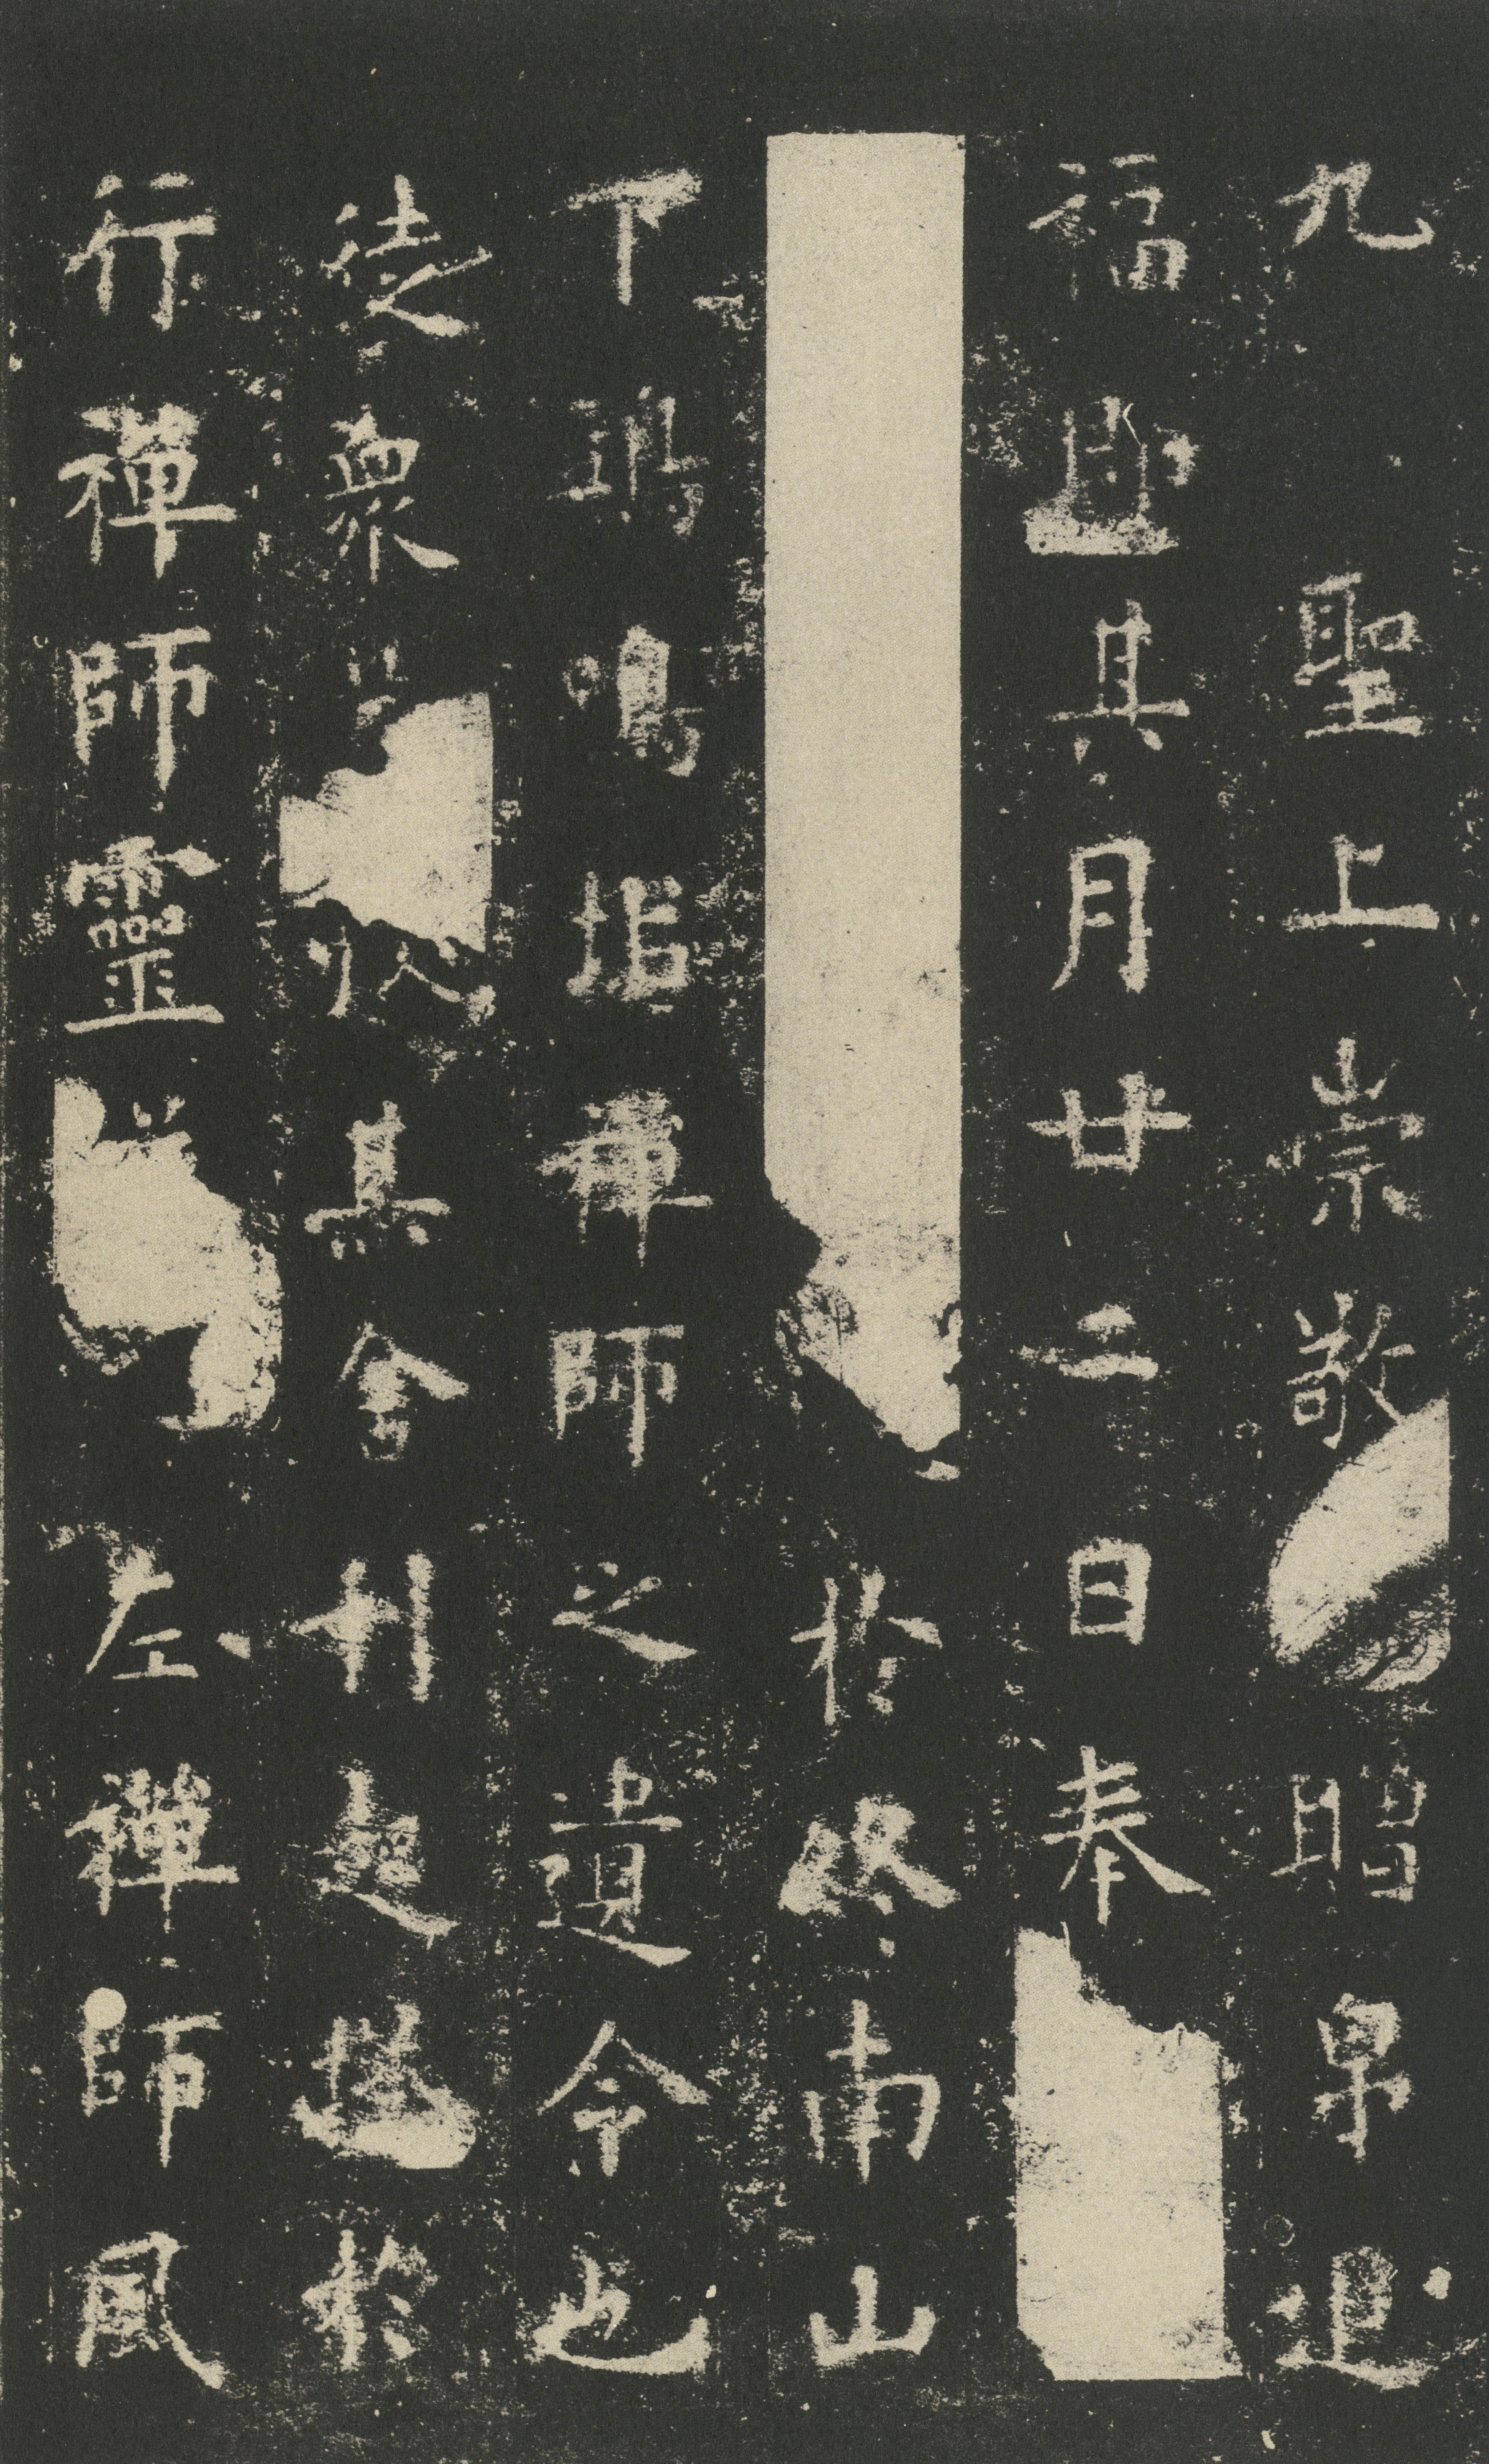 九聖上崇敬聃帛追
福即其月廿二日奉
於終南山
下鴟鳴堆禪師之遺令也
徒眾收其舍利起塔於
行禪師靈左禪師風